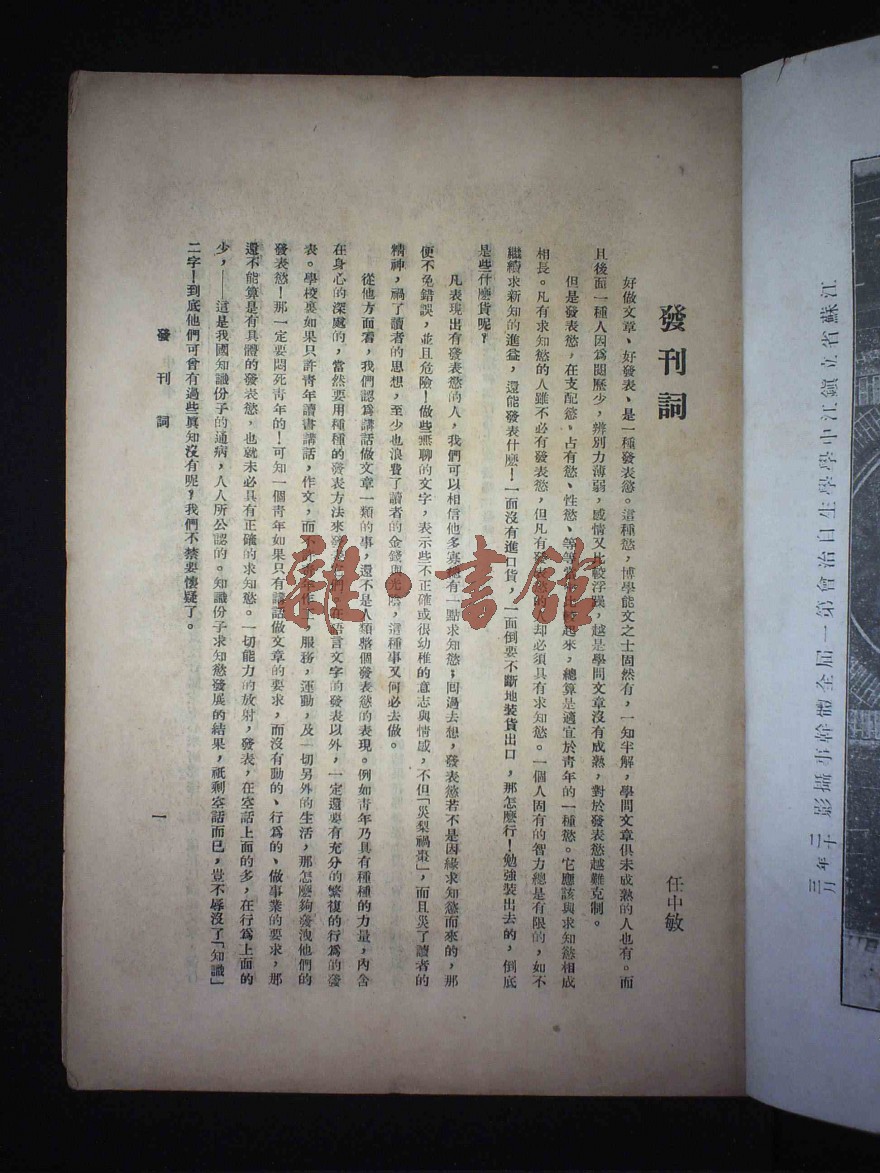 江蘇省立鎮江中學學生自治會第一屆全體幹事攝影
二十年三月
發刊詞
任中敏
好做文章、好發表、是一種發表慾。這種慾，博學能文之士固然有，一知半解，學問文章俱未成熟的人也有。而
且後面一種人因爲閱歷少，辨別力薄弱，感情又比較浮躁，越是學問文章沒有成熟，對於發表慾越難克制。
但是發表慾，在支配慾、占有慾、性慾、等等當中比較起來，總算是適宜於青年的一種慾。它應該與求知慾相成
相長。凡有求知慾的人雖不必有發表慾，但凡有發表慾的人却必須具有求知慾。一個人固有的智力總是有限的，如不
繼續求新知的進益，還能發表什麼！一面沒有進口貨，一面倒要不斷地裝貨出口，那怎麼行！勉強裝出去的，倒底
是些什麼貨呢？
凡表現出有發表慾的人，我們可以相信他多寡總有一點求知慾；囘過去想，發表慾若不是因緣求知慾而來的，那
便不免錯誤，並且危險！做些無聊的文字，表示些不正確或很幼稚的意志與情感，不但「災梨禍棗」，而且災了讀者的
精神，禍了讀者的思想，至少也浪費了讀者的金錢與光陰，這種事又何必去做。
從他方面看，我們認爲講話做文章一類的事，還不是人類整個發表慾的表現。例如靑年乃具有種種的力量，內含
在身心的深處的，當然要用種種的發表方法來發 在語言文字的發表以外，一定還要有充分的繁複的行爲的發
表。學校裏如果只許靑年讀書講話，作文，而不 服務，運動，及一切另外的生活，那怎麼夠發洩他們的
發表慾！那一定要悶死靑年的！可知一個靑年如果只有講話做文章的要求，而沒有動的、行爲的、做事業的要求，那
還不能算是有具體的發表慾，也就未必具有正確的求知慾。一切能力的放射，發表，在空話上面的多，在行爲上面的
少，——這是我國知識份子的通病，人人所公認的。知識份子求知慾發展的結果，祇剩空話而已，豈不辱沒了「知識」
二字！到底他們可曾有過些眞知沒有呢？我們不禁要懷疑了。
發刊詞
一
雜·書館